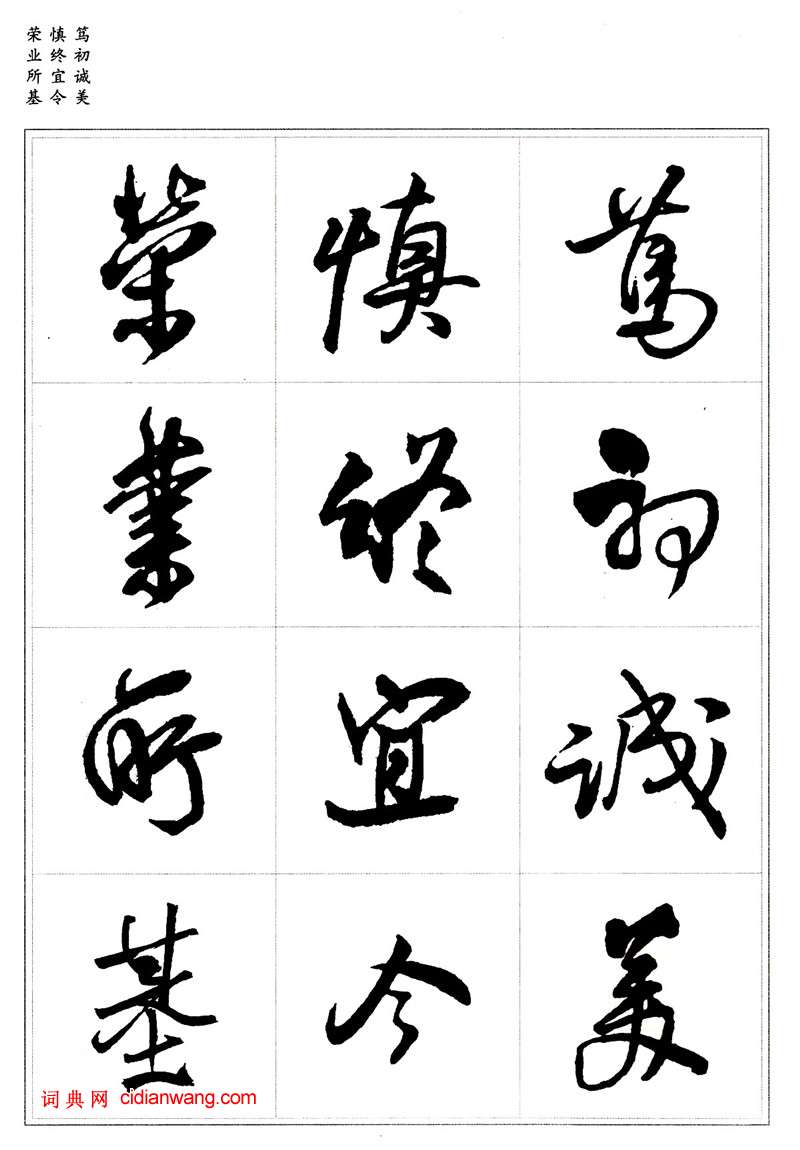 笃初诚美
慎终宜令
荣业所基
笃初诚美
慎终宜令
荣業所基
词典网 cidianwang.com